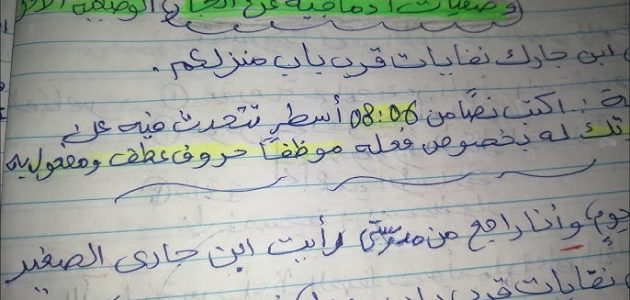 وضعيات إدماجية عن
ابن جارك نفايات قرب باب منزلكم.
اكتب نصًا من 06:08 أسطر تتحدث فيه عن
له بخصوص فعله موظفا حروف عطف ومفعول به
وأنا راجع من مدرستي رأيت ابن جارى الصغير
نفايات قرب باب